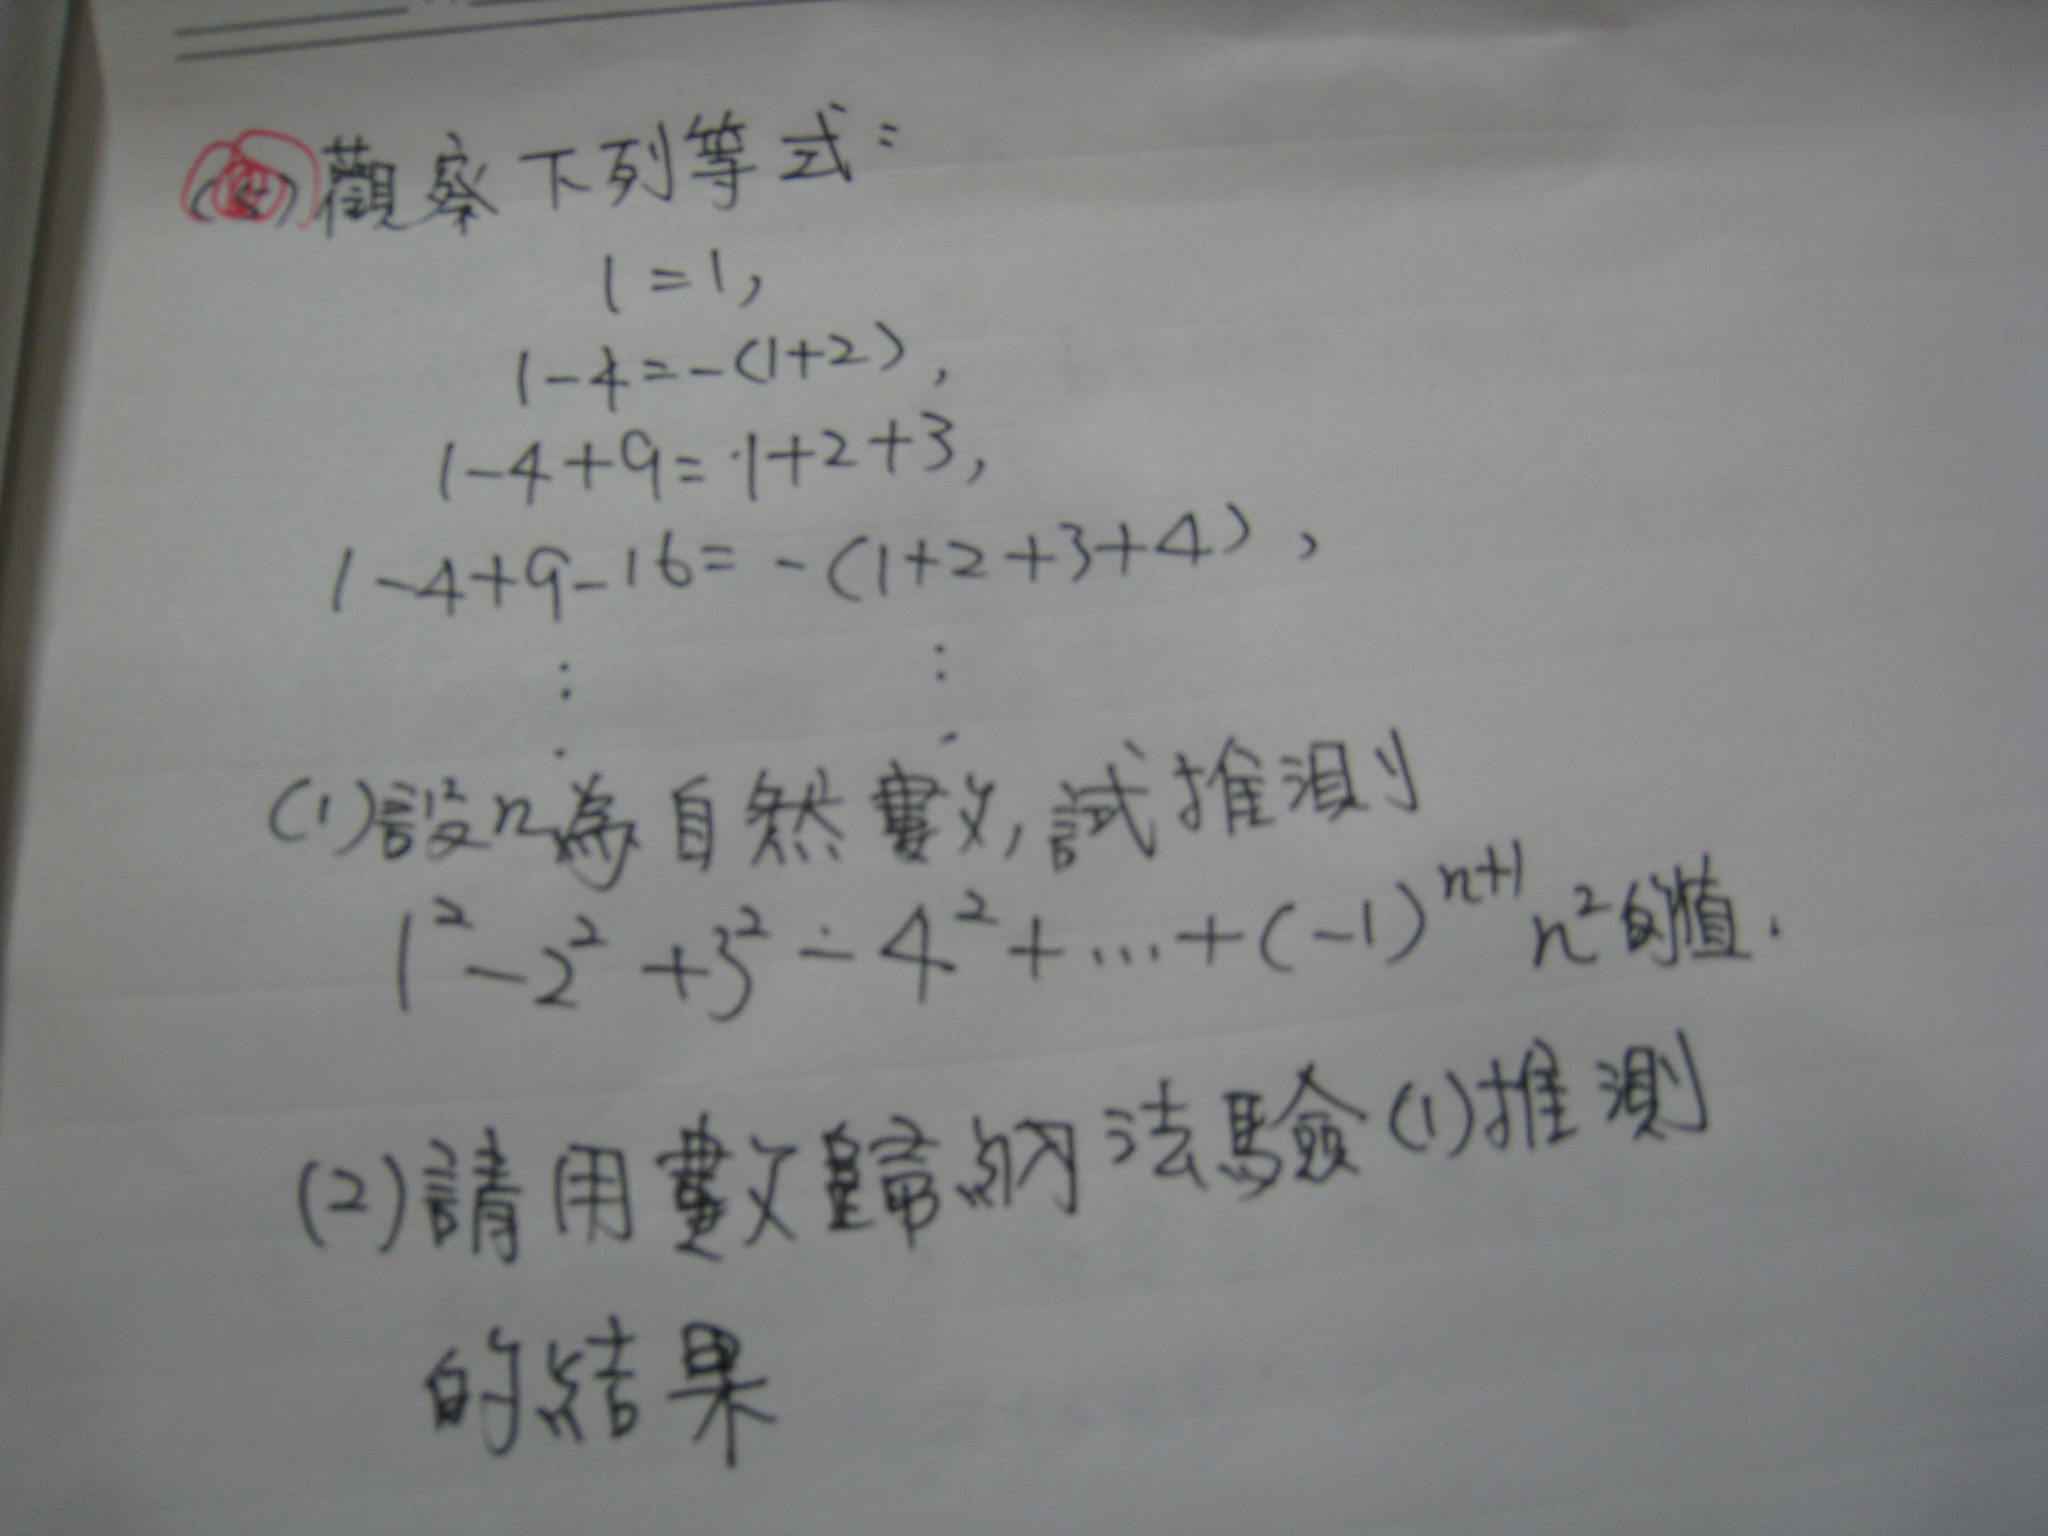 觀察下列等式:
1=1,
1-4=-(1+2),
1-4+9=1+2+3,
1-4+9-16=-(1+2+3+4),
⋮ ⋮
(1)設n為自然數,試推測
1²-2²+3²-4²+...+(-1)ⁿ⁺¹n²的值.
(2)請用數歸納法驗(1)推測
的結果